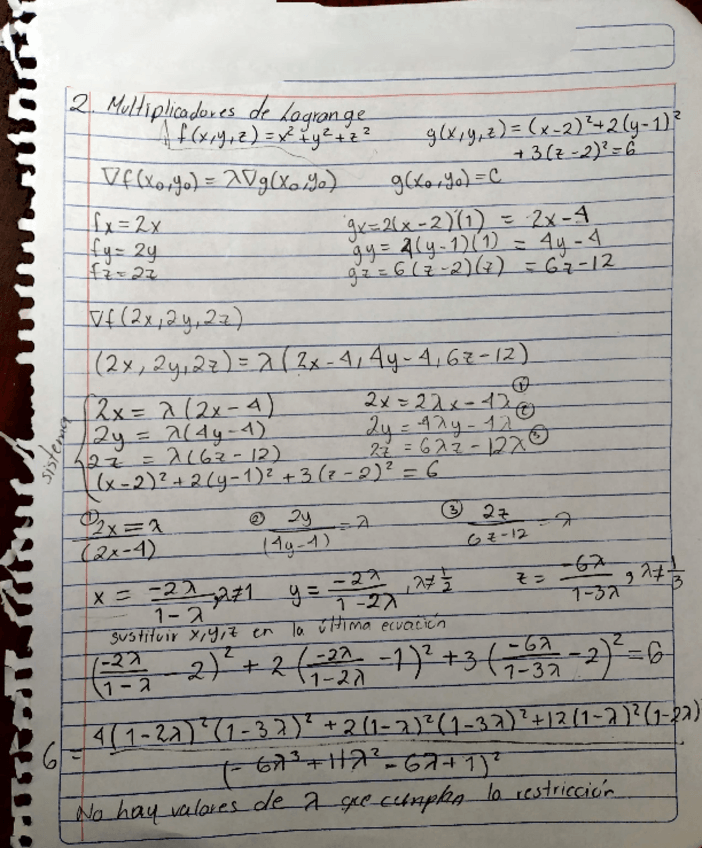 2. Multiplicadores de Lagrange
f(x,y,z) = x² + y² + z²    g(x,y,z) = (x-2)² + 2(y-1)²
+ 3(z-2)² = 6
∇f(x₀,y₀) = λ∇g(x₀,y₀)    g(x₀,y₀) = C
fx = 2x    gx = 2(x-2)(1) = 2x-4
fy = 2y    gy = 4(y-1)(1) = 4y-4
fz = 2z    gz = 6(z-2)(z) = 6z-12
∇f(2x,2y,2z)
(2x, 2y, 2z) = λ(2x-4, 4y-4, 6z-12)
sistema
2x = λ(2x-4)    2x = 2λx-4λ ①
2y = λ(4y-4)    2y = 4λy-4λ ②
2z = λ(6z-12)    2z = 6λz-12λ ③
(x-2)² + 2(y-1)² + 3(z-2)² = 6
① 2x/(2x-4) = λ    ② 2y/(4y-4) = λ    ③ 2z/6z-12 = λ
x = -2λ/1-λ, λ≠1    y = -2λ/1-2λ, λ≠1/2    z = -6λ/1-3λ, λ≠1/3
sustituir x,y,z en la última ecuación
(-2λ/1-λ - 2)² + 2(-2λ/1-2λ - 1)² + 3(-6λ/1-3λ - 2)² = 6
6 = 4(1-2λ)²(1-3λ)² + 2(1-λ)²(1-3λ)² + 12(1-λ)²(1-2λ)/(-6λ³ + 11λ² - 6λ + 1)²
No hay valores de λ que cumplan la restricción